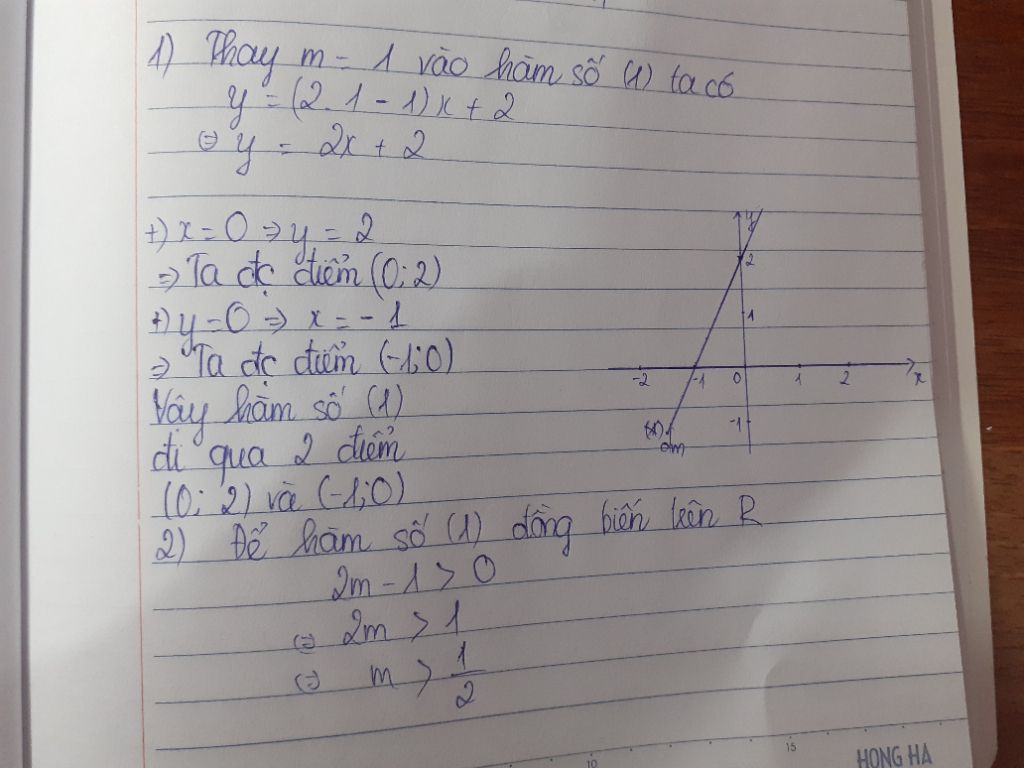 1) Thay m = 1 vào hàm số (1) ta có
y = (2.1 - 1)x + 2
⇔ y = 2x + 2
+) x = 0 ⇒ y = 2
⇒ Ta đc điểm (0; 2)
+) y = 0 ⇒ x = - 1
⇒ Ta đc điểm (-1; 0)
Vây hàm số (1)
đi qua 2 điểm
(0; 2) và (-1; 0)
y
2
1
-2 -1 0 1 2 x
-1
2) Để hàm số (1) đồng biến trên R
2m - 1 > 0
⇔ 2m > 1
⇔ m > 1/2
10 15
HONG HA